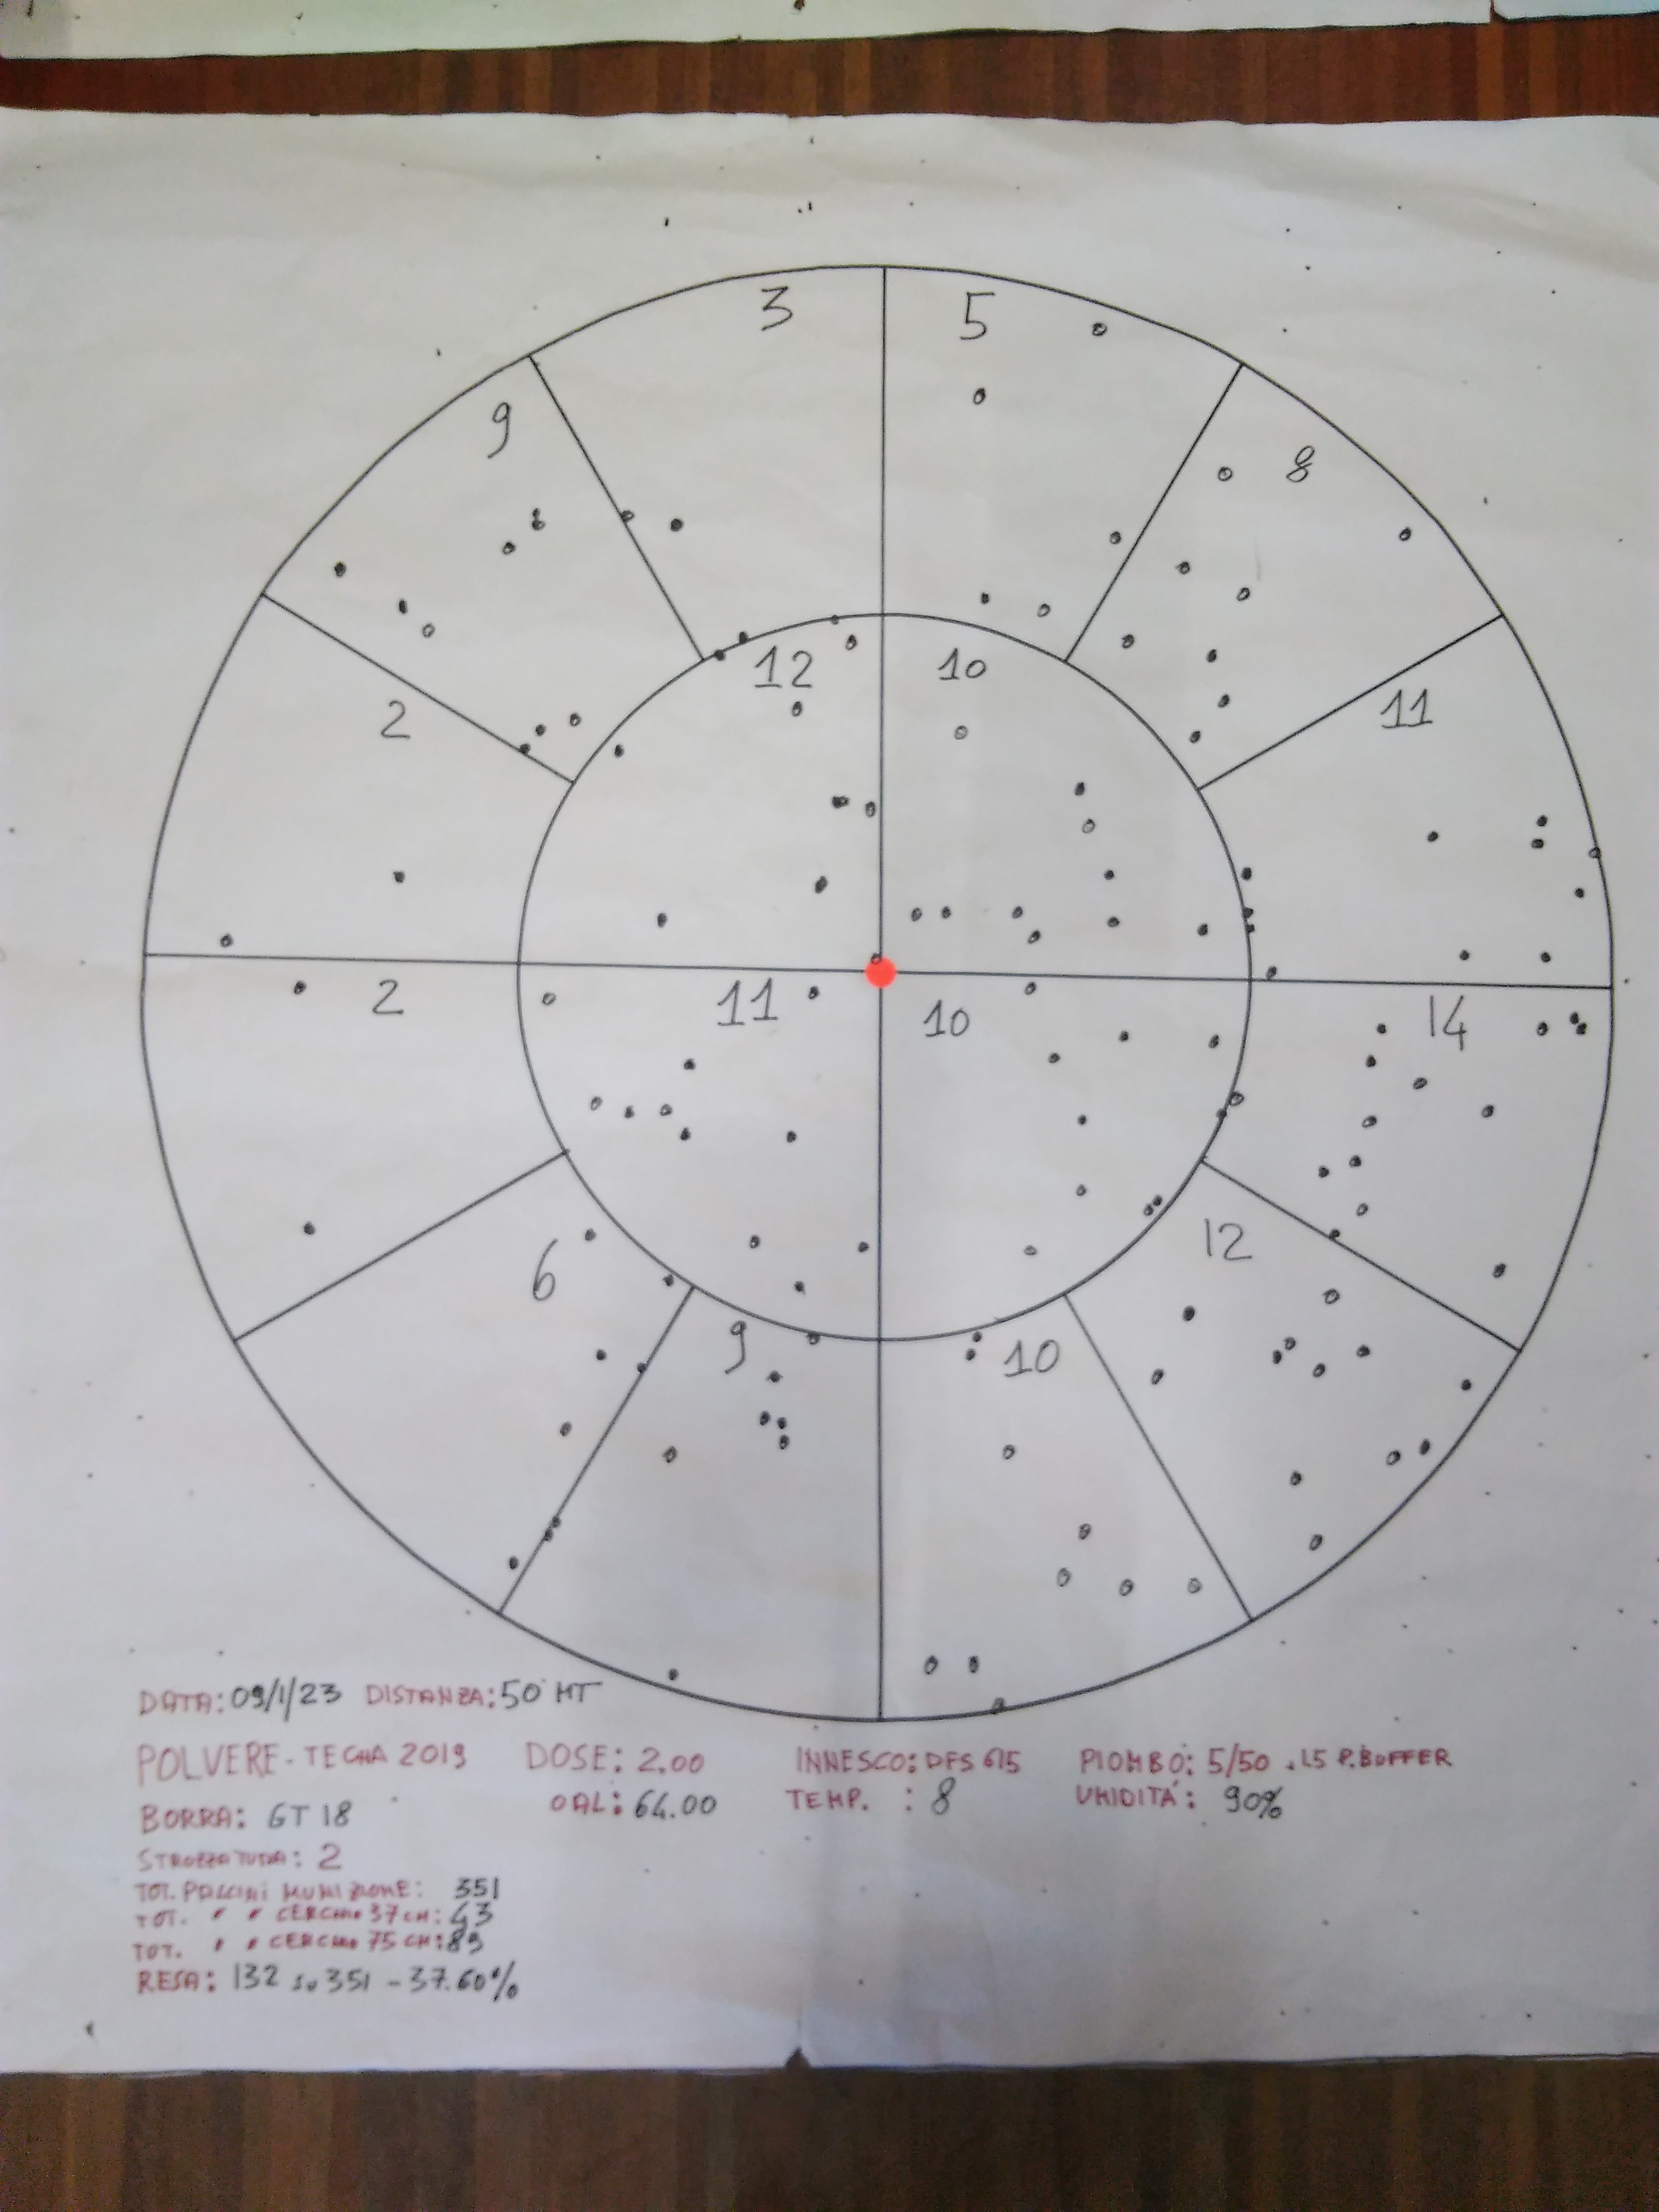 3 5
9 8
12 10
2 11
2 11 10 14
6 12
9 10
DATA: 09/1/23 DISTANZA: 50 MT
POLVERE - TECNA 2019 DOSE: 2.00 INNESCO: DFS 615 PIOMBO: 5/50 .L5 P.BUFFER
BORRA: GT 18 OAL: 64.00 TEMP. : 8 UMIDITÁ: 90%
STROZZATURA: 2
TOT. PALLINI MUNIZIONE: 351
TOT. " " CERCHIO 37 CM: 43
TOT. " " CERCHIO 75 CM: 89
RESA: 132 SU 351 - 37.60%